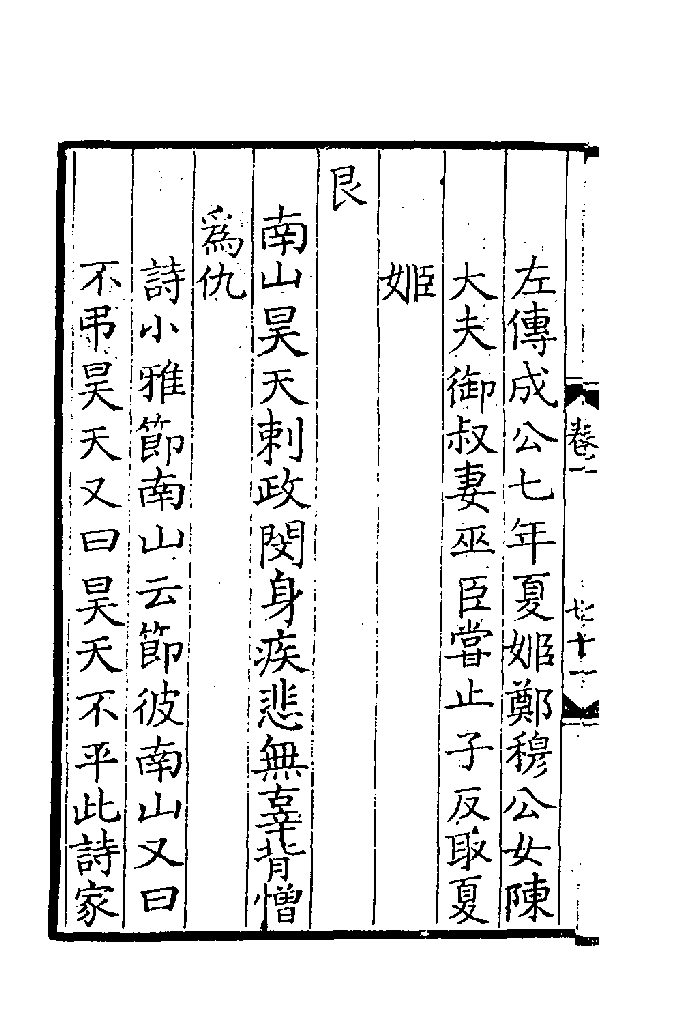 左傳成公七年夏姬鄭穆公女陳
大夫御叔妻巫臣嘗止子反取夏
姬
艮
南山昊天刺政閔身疾悲無辜背憎
爲仇
詩小雅節南山云節彼南山又曰
不弔昊天又曰昊天不平此詩家
卷一
七十一